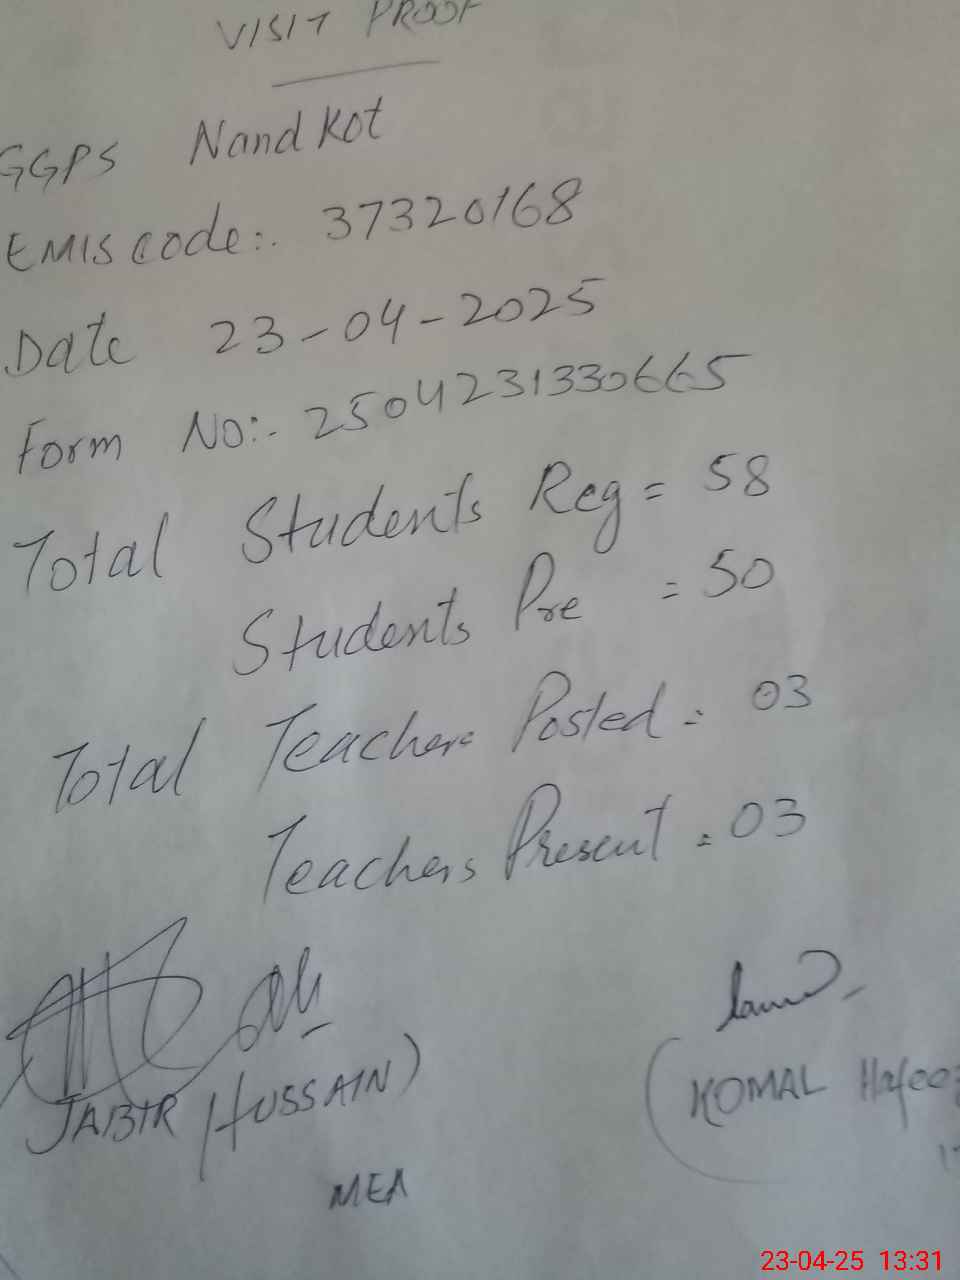 VISIT PROOF
GGPS Nand Kot
EMIS code:. 37320168
Date 23-04-2025
Form No:- 2504231330665
Total Students Reg = 58
Students Pre = 50
Total Teachers Posted = 03
Teachers Present = 03
JABIR HUSSAIN)
(KOMAL Hafeez
MEA
23-04-25 13:31